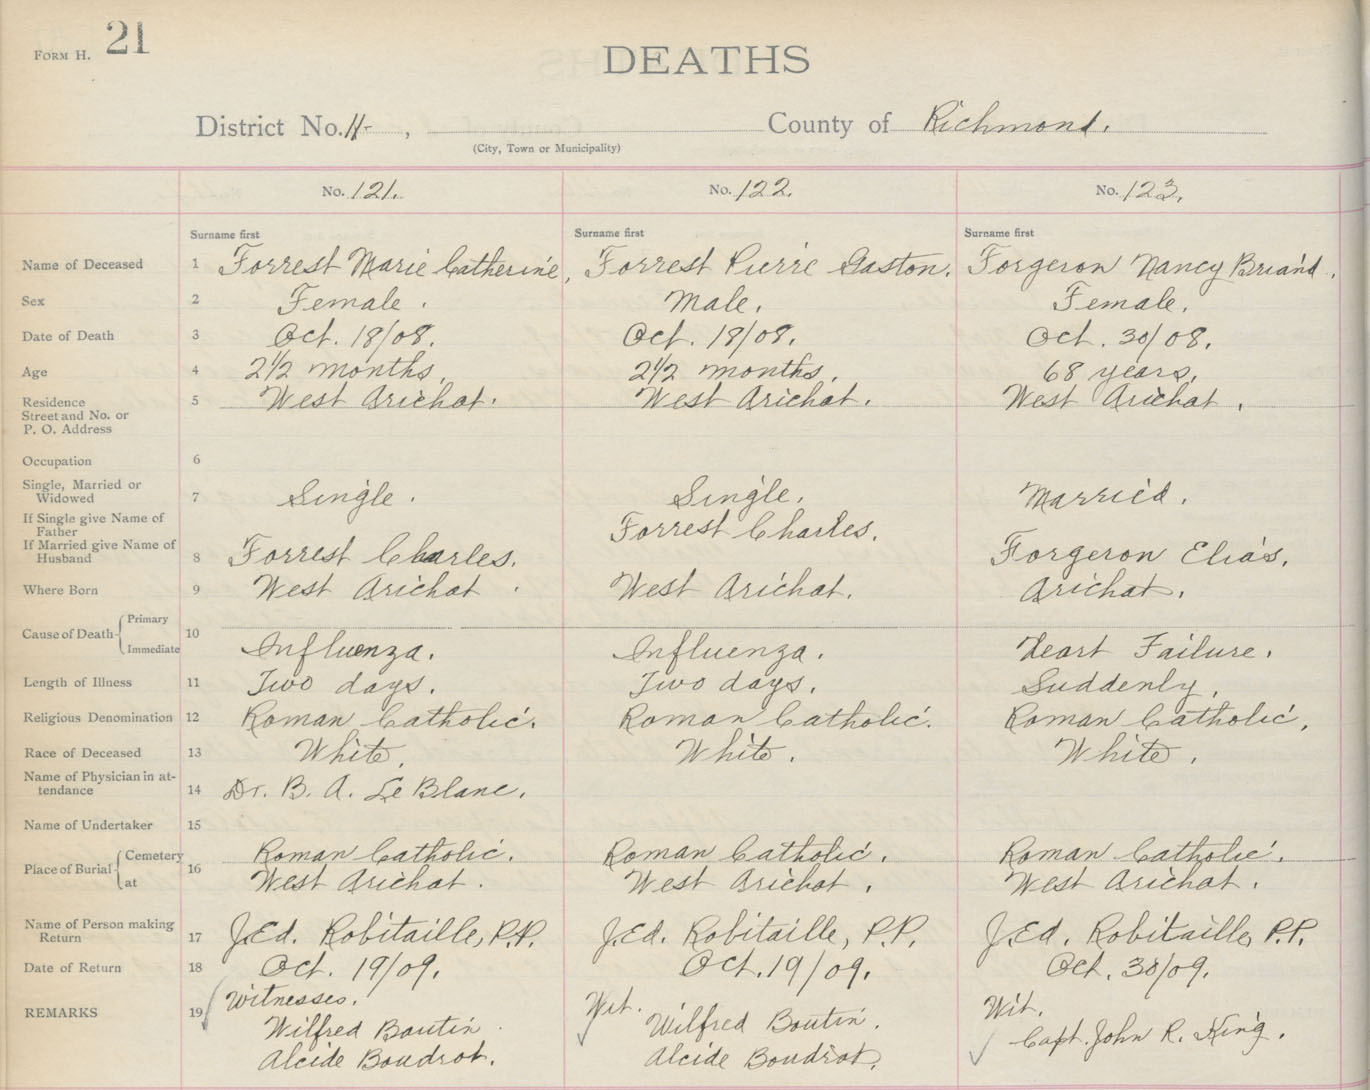 FORM H. 21
DEATHS
District No. 11- , County of Richmond.
(City, Town or Municipality)
No. 121. No. 122. No. 123.
Surname first Surname first Surname first
Name of Deceased 1 Forrest Marie Catherine, Forrest Pierre Gaston. Forgeron Nancy Briand.
Sex 2 Female. Male. Female.
Date of Death 3 Oct. 18/08. Oct. 18/08. Oct. 30/08.
Age 4 2 1/2 months. 2 1/2 months. 68 years.
Residence 5 West Arichat. West Arichat. West Arichat.
Street and No. or
P. O. Address
Occupation 6
Single, Married or
Widowed 7 Single. Single. Married.
If Single give Name of
Father Forrest Charles.
If Married give Name of
Husband 8 Forrest Charles. Forgeron Elias.
Where Born 9 West Arichat. West Arichat. Arichat.
Cause of Death Primary 10
Immediate Influenza. Influenza. Heart Failure.
Length of Illness 11 Two days. Two days. Suddenly.
Religious Denomination 12 Roman Catholic. Roman Catholic. Roman Catholic.
Race of Deceased 13 White. White. White.
Name of Physician in at-
tendance 14 Dr. B. A. Le Blanc.
Name of Undertaker 15
Place of Burial Cemetery 16 Roman Catholic. Roman Catholic. Roman Catholic.
at West Arichat. West Arichat. West Arichat.
Name of Person making
Return 17 J. Ed. Robitaille, P.P. J. Ed. Robitaille, P.P. J. Ed. Robitaille, P.P.
Date of Return 18 Oct. 19/09. Oct. 19/09. Oct. 30/09.
REMARKS 19 Witnesses. Wit. Wit.
Wilfred Boutin. Wilfred Boutin. Capt. John R. King.
Alcide Boudrot. Alcide Boudrot.